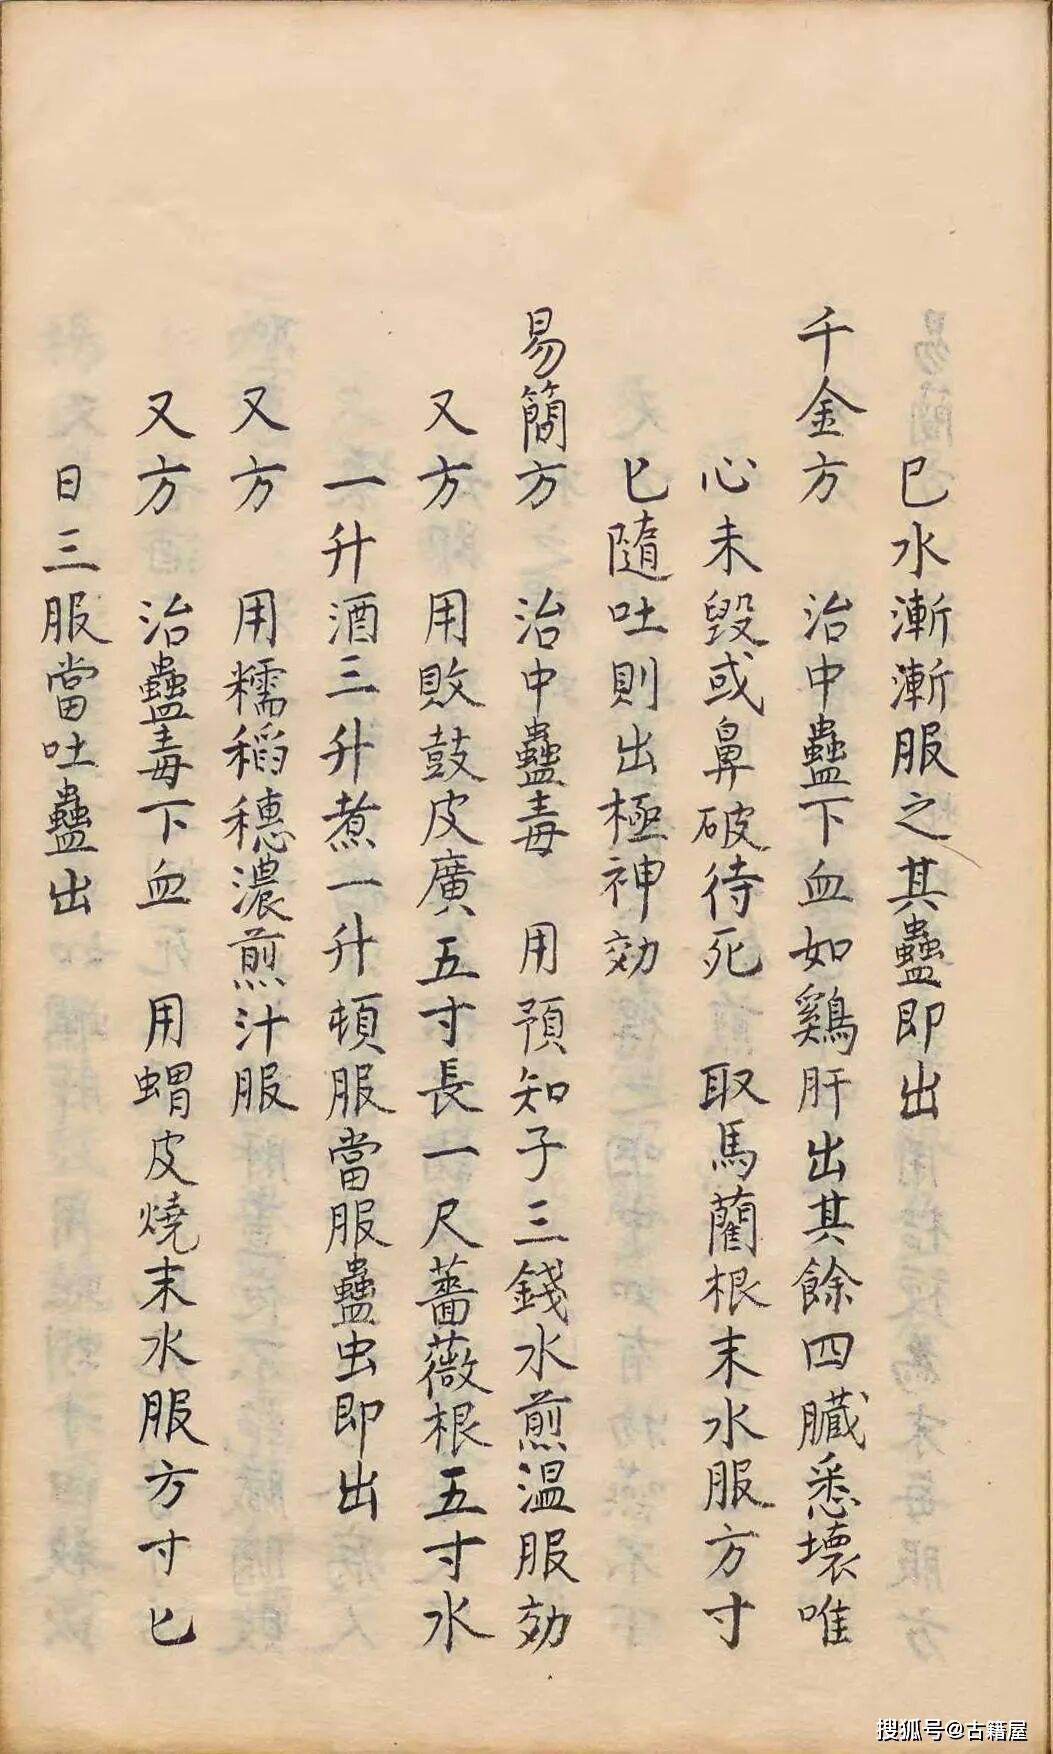 巳水漸漸服之其蠱即出
千金方 治中蠱下血如鷄肝出其餘四臟悉壞唯
心未毀或鼻破待死 取馬藺根末水服方寸
匕隨吐則出極神効
易簡方 治中蠱毒 用預知子三錢水煎温服効
又方 用敗鼓皮廣五寸長一尺薔薇根五寸水
一升酒三升煮一升頓服當服蠱虫即出
又方 用糯稻穗濃煎汁服
又方 治蠱毒下血 用蝟皮燒末水服方寸匕
日三服當吐蠱出
搜狐号@古籍屋